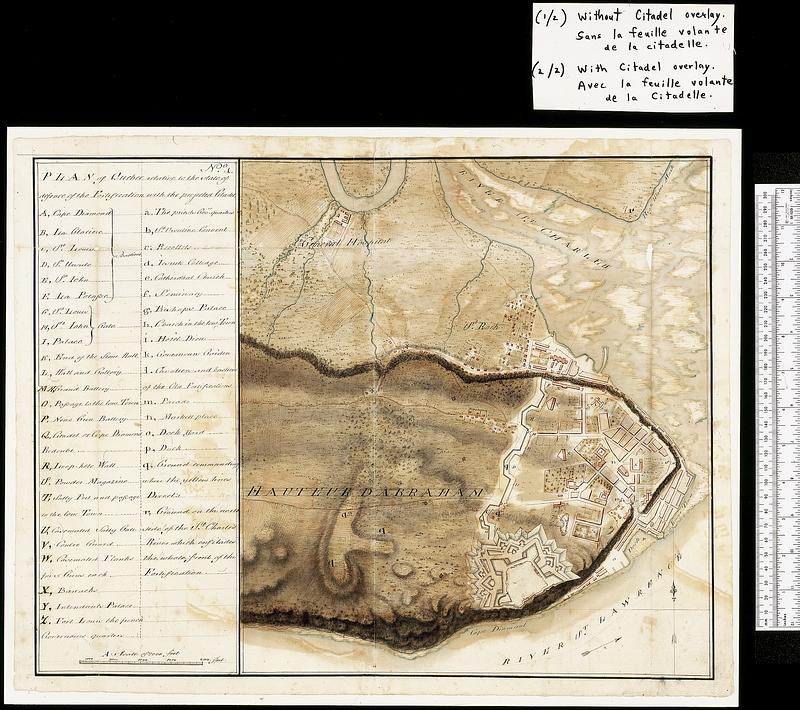 (1/2) Without Citadel overlay.
Sans la feuille volante
de la citadelle.
(2/2) With Citadel overlay.
Avec la feuille volante
de la Citadelle.
PLAN of Quebec relative to the State of
defence of the Fortification with the projected Citadel
A, Cape Diamond
B, La Glaciere
C, St. Louis
D, St. Ursule
E, St. John
F, La Potasse
G, St. Louis
H, St. John
Gate
I, Palace
K, End of the Stone Wall
L, Wall and Gallery
Grand Battery
O, Passage to the low Town
P, Nine Gun Battery
Q, Cape Diamond
Redoubt
R, Loop hole Wall
S, Powder Magazine
T, Sally Port and passage
to the low Town
U, Casemated Sally Gate
V, Guard
W, Casemated Flanks
Guns each
X, Barracks
Y, Intendants Palace
Z, Fort Louis the french
Governors quarters
b, Ursuline Convent
c, Recollets
d, Jesuits College
e, Cathedral Church
f, Seminary
g, Bishops Palace
h, Church in the low Town
i, Hotel Dieu
k, Governour Garden
l, Cavaliers and bastions
of the Old Fortifications
m, Parade
n, Market place
o, Dock Yard
p, Dock
q, Ground commanding
where the yellow lines
Directs
r, Ground on the north
side of the St. Charles
River which enfilades
the whole front of the
Fortification
A Scale of feet
General Hospital
RIVER St. CHARLES
St. Rock
HAUTEUR DABRAHAM
Cape Diamond
RIVER St. LAWRENCE